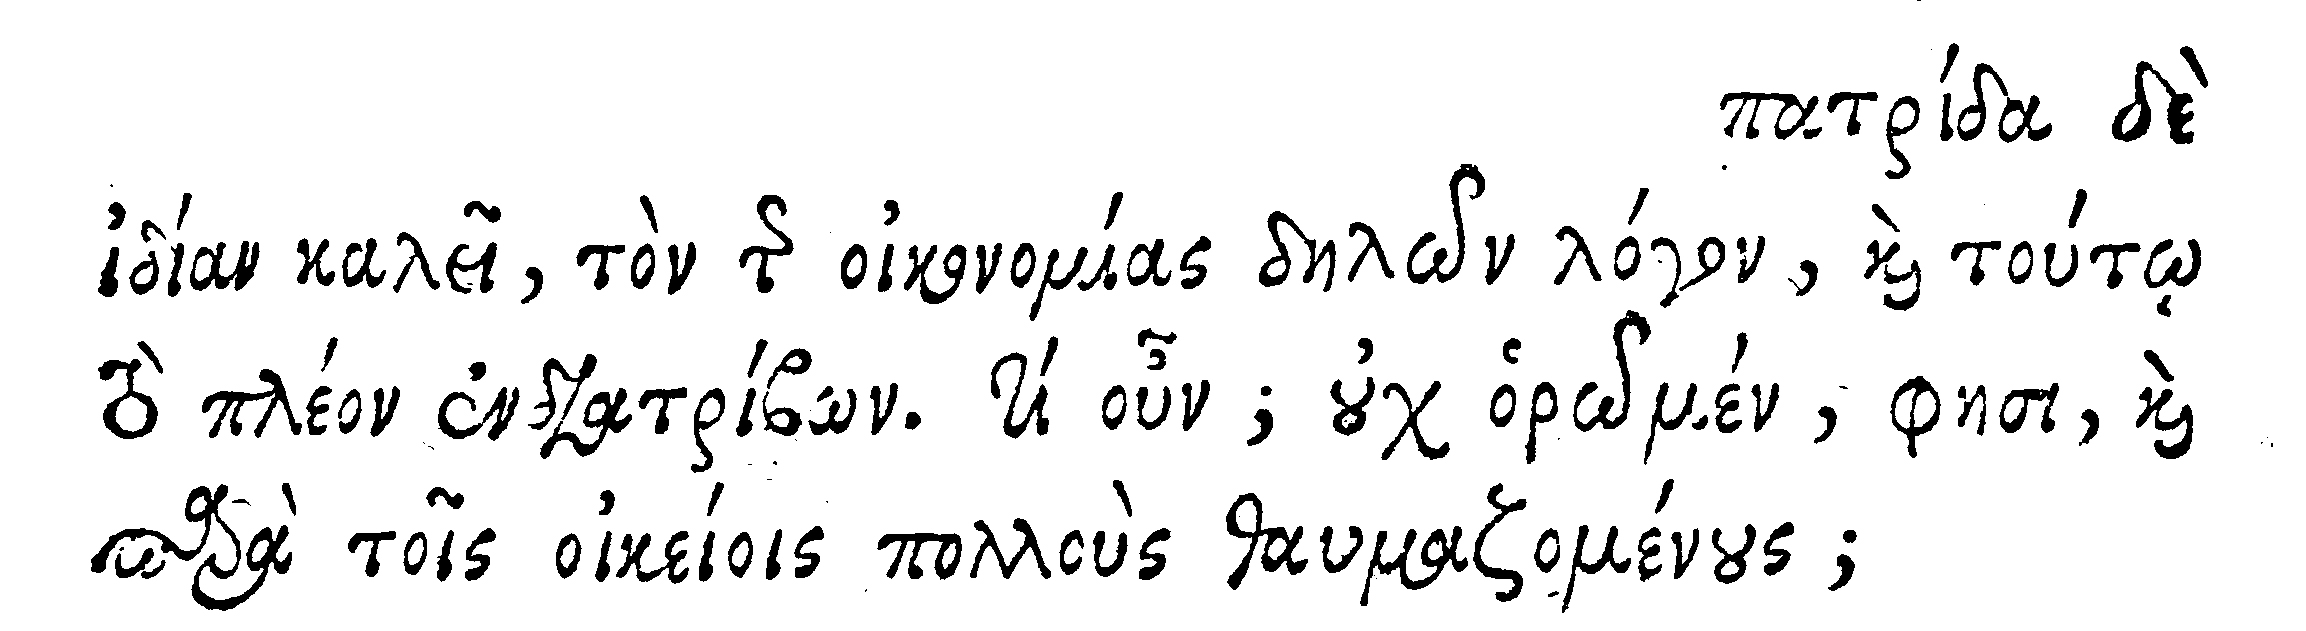 πατρίδα δὲ
ἰδίαν καλεῖ, τὸν τῆς οἰκονομίας δηλῶν λόγον, καὶ τούτῳ
τὸ πλέον ἐνδιατρίβων. τί οὖν; οὐχ ὁρῶμέν, φησι, καὶ
παρὰ τοῖς οἰκείοις πολλοὺς θαυμαζομένους;